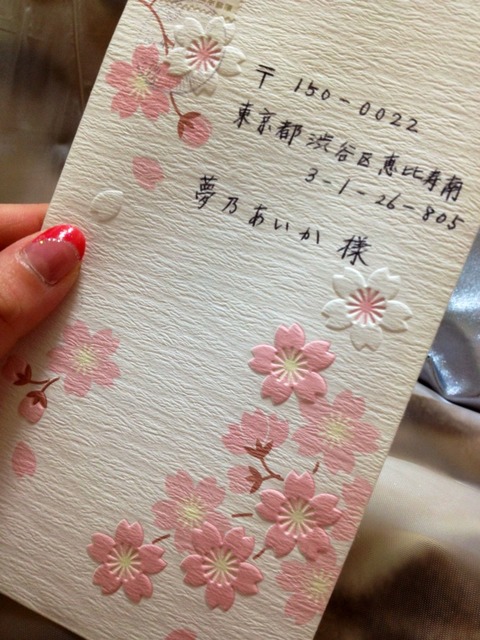 〒150-0022
東京都渋谷区恵比寿南
3-1-26-805
夢乃あいか 様